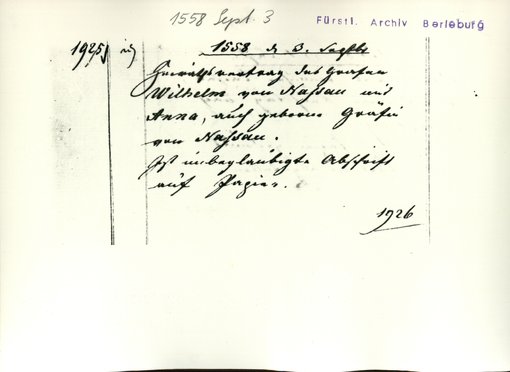 1558 Sept. 3
Fürstl. Archiv Berleburg
1925
1558 d 3. Septbr
Heirathsvertrag des Grafen
Wilhelm von Nassau mit
Anna, auch geborene Gräfin
von Nassau.
Ist unbeglaubigte Abschrift
auf Papier.
1926